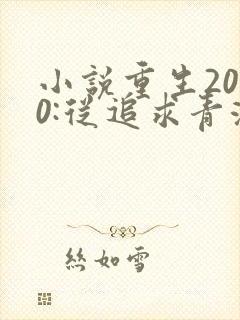 小說重生20
0:從追求青
絲如雪